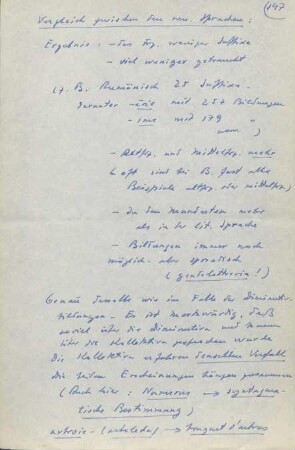 147
Vergleich zwischen den rom. Sprachen:
Ergebnis: - Im Frz. weniger Suffixe
- viel weniger gebraucht
(z. B. Rumänisch 25 Suffixe
darunter mit 257 Bildungen
- ime mit 179 "
usw)
- Altfrz. und Mittelfrz. mehr
(oft sind bei B. fast alle
Beispiele altfrz. oder mittelfrz.)
- In den Mundarten mehr
als in der lit. Sprache
- Bildungen immer noch
möglich, aber sporadisch
Genau dasselbe wie im Falle der Diminutiv-
bildungen. Es ist merkwürdig, daß
soviel über die Diminutiva und kaum
über die Kollektiva geschrieben wurde
Die Kollektiva erfahren denselben Verfall
Die beiden Erscheinungen hängen zusammen
(Auch hier: Numerus → syntagma-
tische Bestimmung)
→ bouquet d'arbres